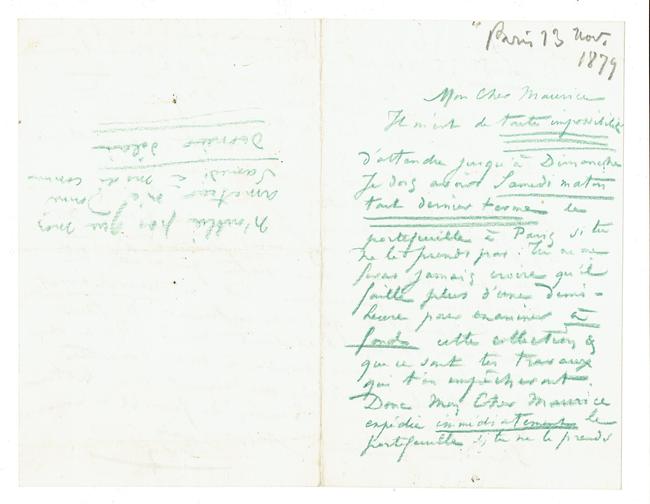 Paris 13 Nov.
1879
Mon Cher Maurice
Il m'est de toute impossibilité
d'attendre jusqu'à Dimanche
Je dois avoir Samedi matin
tout dernier terme le
portefeuille à Paris si tu
ne le prends pas. Tu ne me
feras jamais croire qu'il
faille plus d'une demi-
heure pour examiner à
fond cette collection &
que ce sont tes travaux
qui t'en empêcheront.
Donc Mon Cher Maurice
expédie immédiatement le
portefeuille si tu ne le prends
N'oublie pas que mon
Samedi
Dernier délai